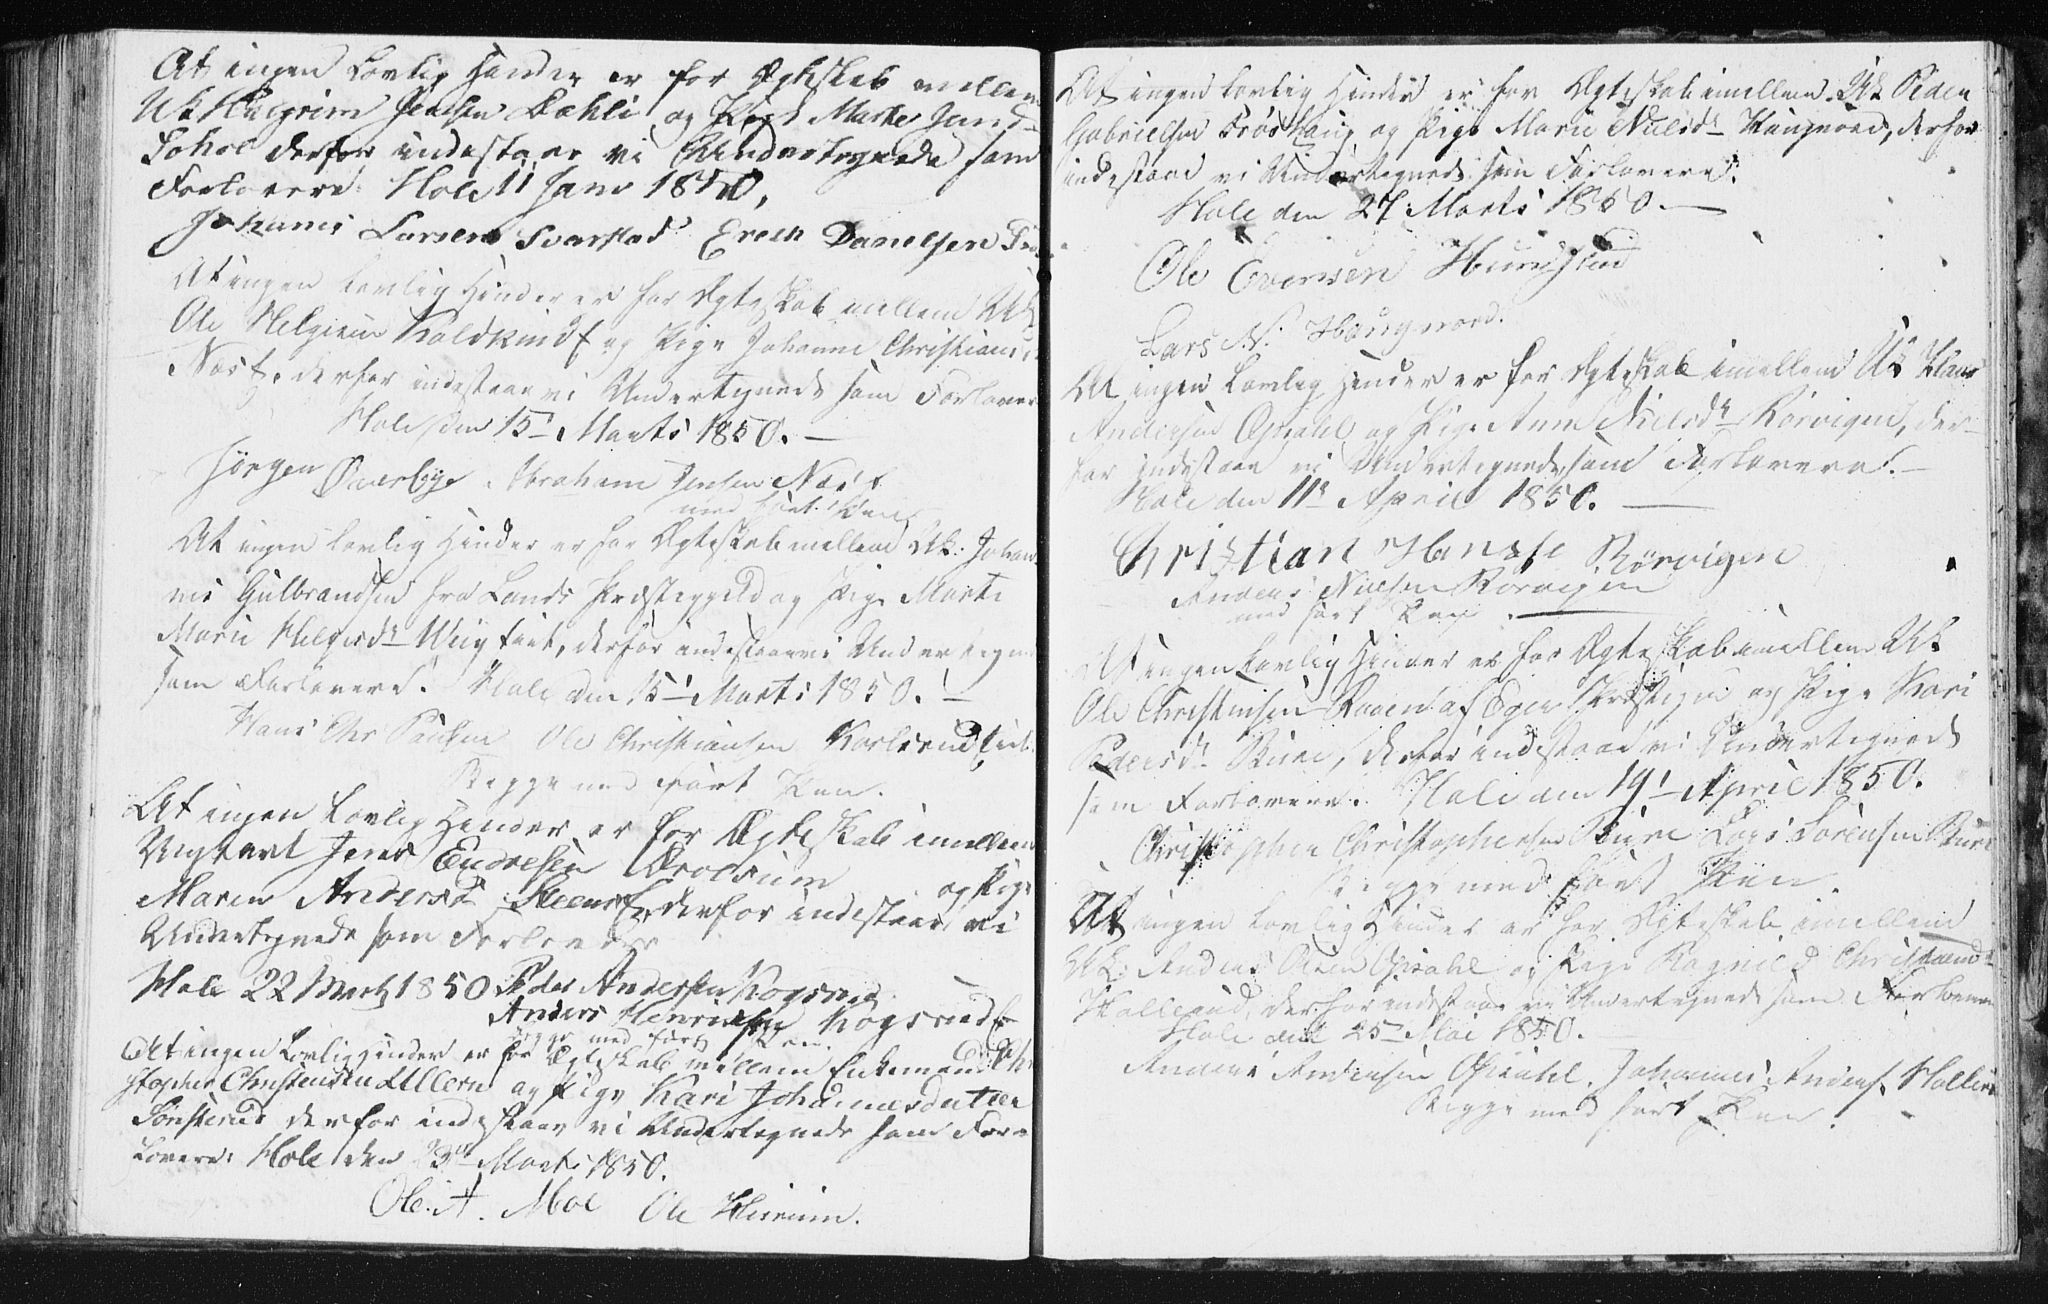 At ingen Lovlig Hinder er for Ægteskab mellem
UK Halgrim Jensen Dæhli og Pige Marthe Jensd
Sohol derfor indestaar vi Undertegnede som
Forlovere Hole 11 Janv 1850,
Johannis Larsen Svarstad Erech Danielsen
At ingen Lovlig Hinder er for Ægteskab mellem UK
Ole Helgesen Koldkind og Pige Johanne Christians
Næs, derfor indestaar vi Undertegnede som Forlover
Hole den 15 Marts 1850. —
Jørgen Øverbye. Abraham Jensen Næs
med ført Pen
At ingen Lovlig Hinder er for Ægteskab mellem UK. Johan
nes Gulbrandsen fra Lands Præstegjeld og Pige Marte
Marie Helgesdr derfor indestaar vi Undertegn
som Forlovere. Hole den 15 Marts 1850. —
Hans Chr Paulsen Ole Christiansen Karlsrud
Begge med ført Pen.
At ingen Lovlig Hinder er for Ægteskab imellem
Ungkarl Jens Endresen og Pige
Maren Andersd derfor indestaar vi
Undertegnede som Forlovere
Hole 22 Marts 1850 Peder Andersen Kogsrud
Anders Henriksen Kogsrud
begge med ført Pen.
At ingen Lovlig Hinder er for Ægteskab mellem Enkemand Chri
stopher Christensen Ullern og Pige Kari Johannesdatter
Sønsterud derfor indestaar vi Undertegnede som For-
lovere. Hole den 23 Marts 1850.
Ole. A. Moe Ole
At ingen Lovlig Hinder er for Ægteskab imellem UK Peder
Gabrielsen Frøshaug og Pige Marie Nielsdr Haugnord, derfor
indestaar vi Undertegnede som Forlovere.
Hole den 27 Marts 1850. —
Ole Evensen Hundstad
Lars N. Haugnord.
At ingen Lovlig Hinder er for Ægteskab imellem UK Hans
Andersen Opsahl og Pige Anne Nielsdr Rørvigen, der-
for indestaar vi Undertegnede som Forlovere. —
Hole den 11 April 1850. —
Christian Hansen Rørvigen
Anders Nielsen Rørvigen
med ført Pen.
At ingen Lovlig Hinder er for Ægteskab imellem UK
Ole Christensen af Eger Præstegjeld og Pige Kari
Pedersdr Bure, derfor indestaar vi Undertegnede
som Forlovere. Hole den 19 April 1850.
Christopher Christophersen Bure Lars Sørensen Bure
Begge med ført Pen.
At ingen Lovlig Hinder er for Ægteskab imellem
UK. Anders Opsahl og Pige Ragnild Christiansd
derfor indestaar vi Undertegnede som Forlovere
Hole den 25 Mai 1850.
Anders Andersen Opsahl. Johannes Anders.
Begge med ført Pen.